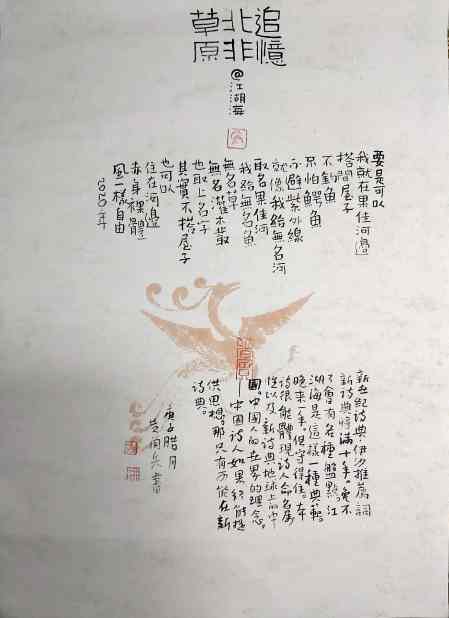 追憶
北非
草原
@江湖海
要是可以
我就在果佳河邊
搭間屋子
不釣魚
只怕鱷魚
避紫外線
就像我給無名河
取名果佳河
我給無名魚
無名草
無名灌木叢
也取上名字
其實不搭屋子
也可以
住在河邊
赤身裸體
風一樣自由
2020年
新世紀詩典伊沙推薦詞
新詩典將滿十年，免不
了會有各種盤點。江
湖海是這樣一種典藝，
晚來一年，但守得住。本
詩很能體現詩人命名屬
性以及新詩典地球上的中
國，中國人的世界的理念。
——中國詩人如果終能提
供思想，那只有可能在新
詩典。
庚子腊月
黄開兵書